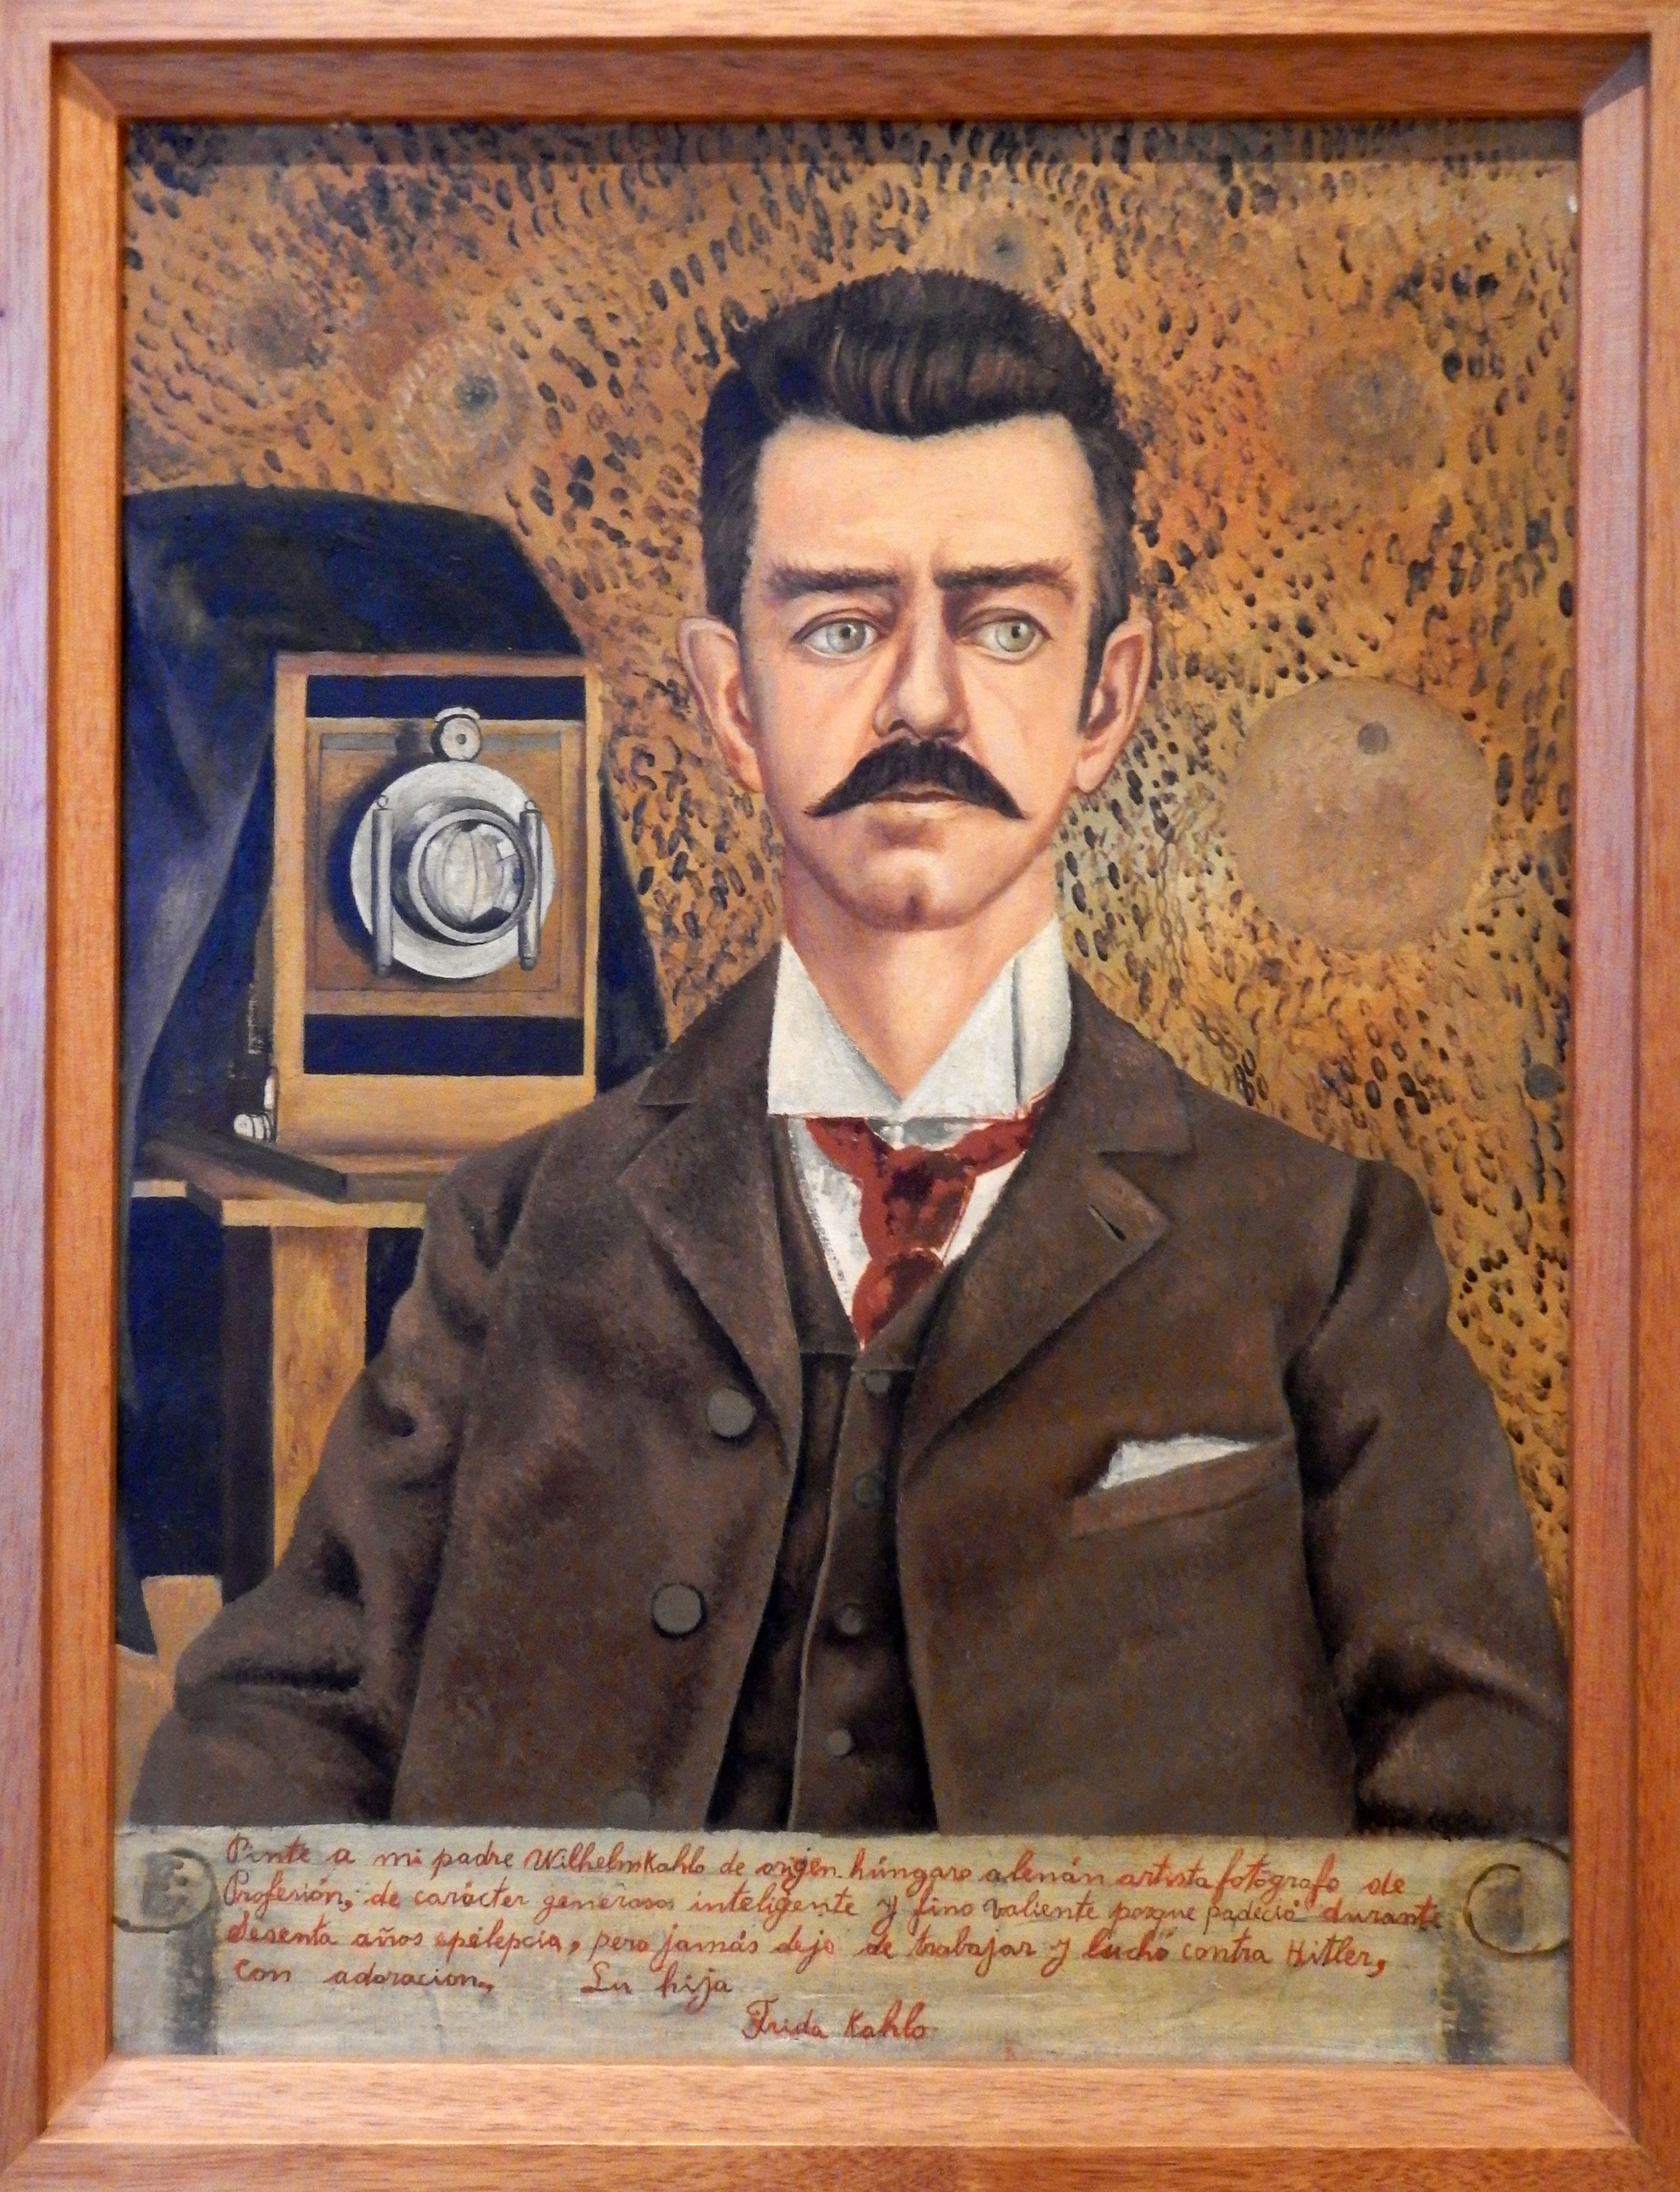 Pinte a mi padre Wilhelm Kahlo de origen húngaro alemán artista fotógrafo de
Profesión, de carácter generoso inteligente y fino valiente porque padeció durante
sesenta años epilepcia, pero jamás dejo de trabajar y luchó contra Hitler,
con adoracion. Su hija
Frida Kahlo